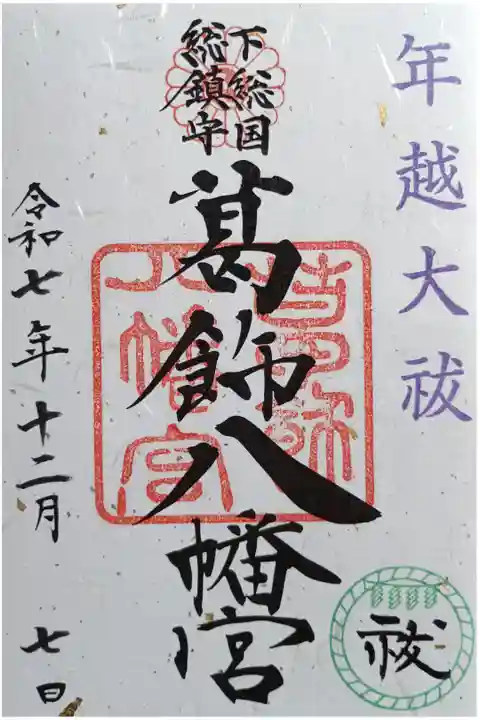 年越大祓
下総国
総鎮守
葛飾八幡宮
令和七年十二月 七日
祓